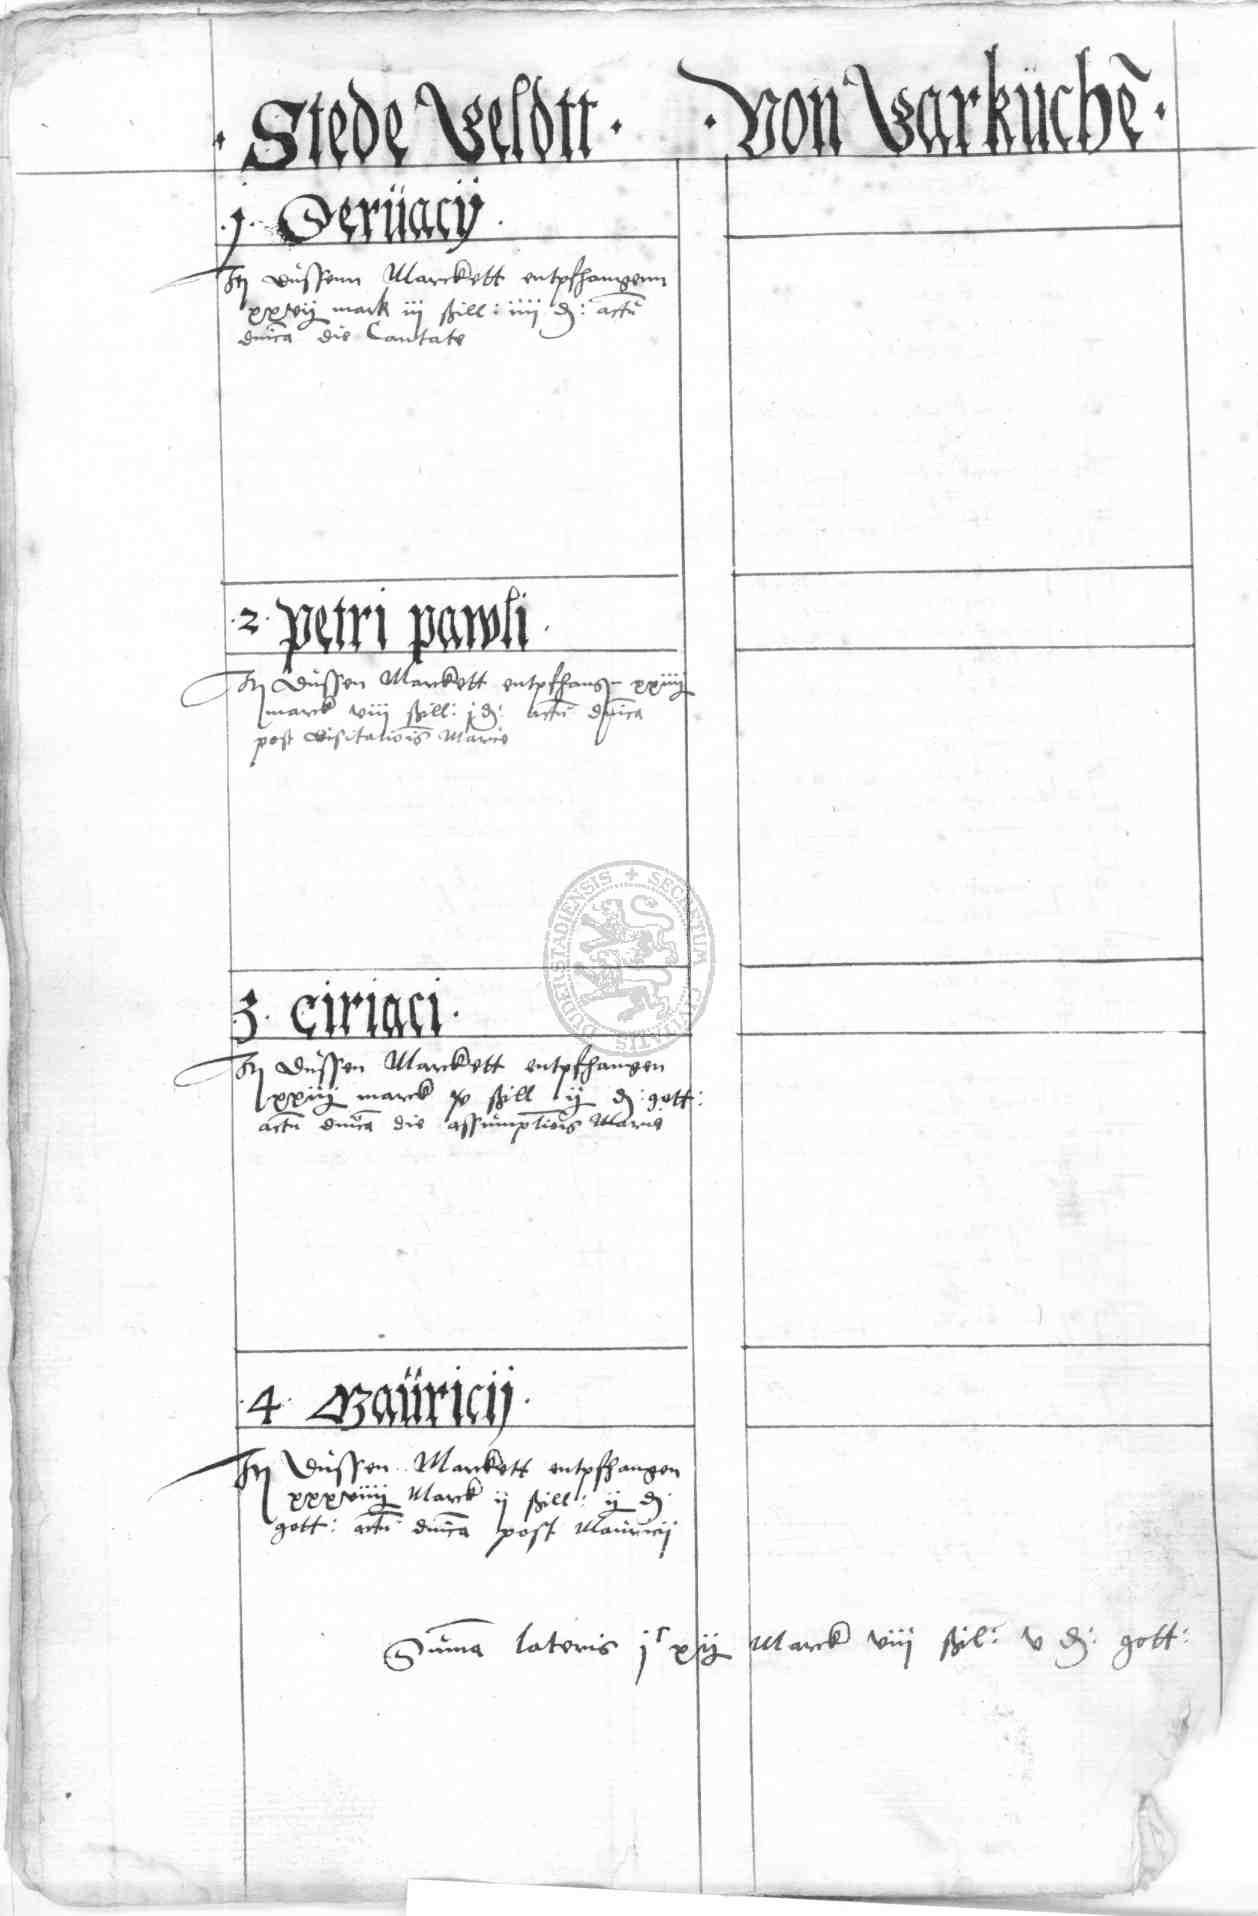 · Stede Geldtt · · Von Garküchē ·
·j· Gerüacij ·
In dussenn Marckett entpfhangenn
xxvij mark iij ßill: iiij d: actū
dn̄ica die Cantate
·2· Petri pawli ·
In Dussen Marckett entpfhangen xxiiij
marck viii ßill: j d: actū dn̄ica
post visitatiōis Marie
3 · Ciriaci ·
In Dussen Marckett entpfhangen
xxiij marck xv ßill ij d: gott:
actū dn̄ica die assumptiōis Marie
·4· Maüricij ·
In Dussen Marckett entpfhangen
xxxviiij Marck ij ßill: ij d
gott: actū dn̄ica post Mauricij
Sum̄a lateris jᶜ xij Marck viij ßil: v d: gott:
DUDERSTADIENSIS + SECRETUM CIVITATIS